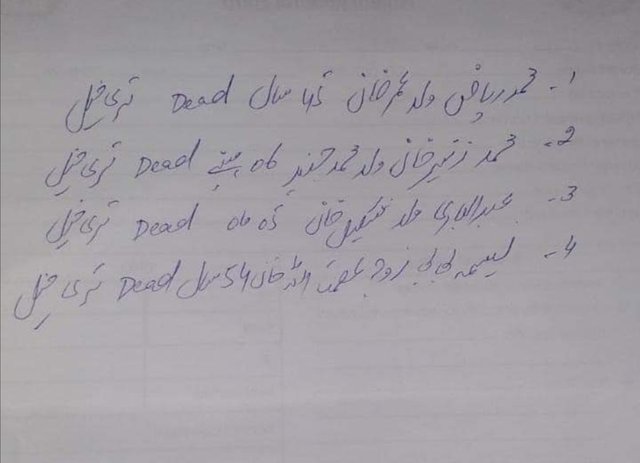 1- محمد ریاض ولد عمر خان 45 سال Dead تری خیل
2- محمد زنیر خان ولد محمد جنید ماہ Dead تری خیل
3- عبدالباری ولد شکیل خان ماہ Dead تری خیل
4- بی بی زوجہ عصمت اللہ خان 54 سال Dead تری خیل